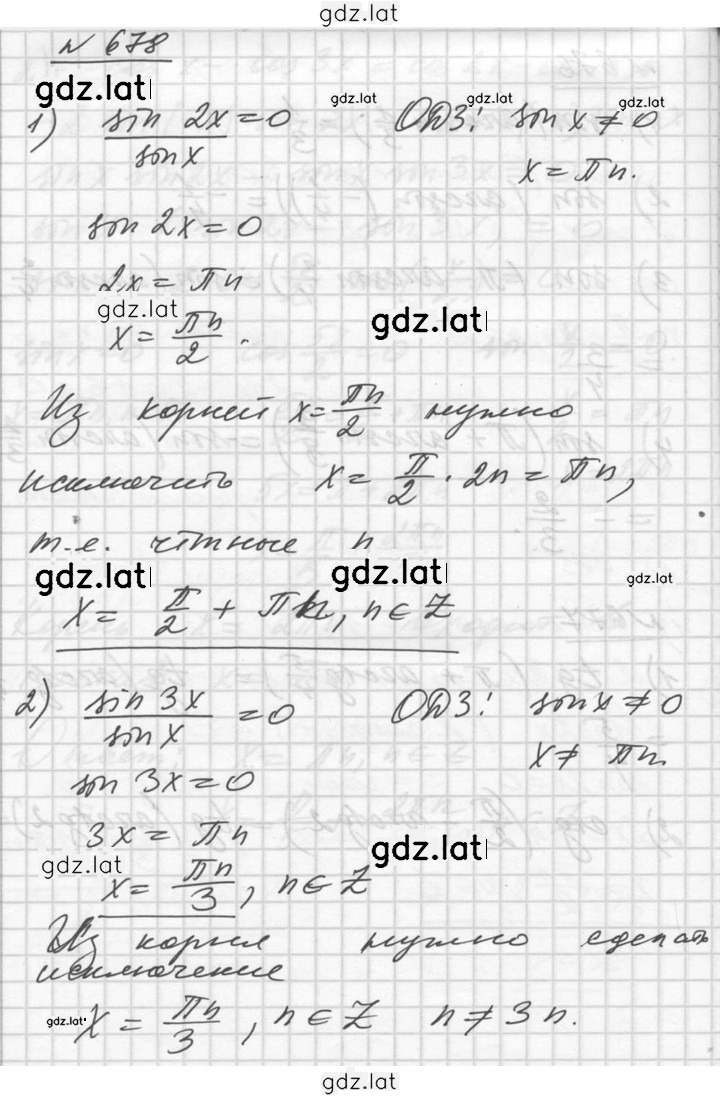 gdz.lat
№ 678
gdz.lat
1) sin 2x / sin x = 0 ОДЗ: sin x ≠ 0
gdz.lat gdz.lat gdz.lat
x = πn.
sin 2x = 0
2x = πn
gdz.lat
x = πn/2 .
gdz.lat
Из корней x = πn/2 нужно
исключить x = π/2 · 2n = πn,
т.е. чётные n
gdz.lat gdz.lat gdz.lat
x = π/2 + πn, n ∈ Z
2) sin 3x / sin x = 0 ОДЗ: sin x ≠ 0
x ≠ πn.
sin 3x = 0
3x = πn
gdz.lat gdz.lat
x = πn/3, n ∈ Z
Из корня нужно сделать
исключение
gdz.lat
x = πn/3, n ∈ Z n ≠ 3n.
gdz.lat